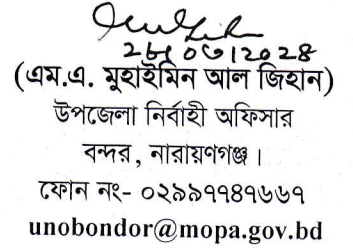 (এম.এ. মুহাইমিন আল জিহান)
উপজেলা নির্বাহী অফিসার
বন্দর, নারায়ণগঞ্জ।
ফোন নং- ০২৯৯৭৭৪৭৬৬৭
unobondor@mopa.gov.bd